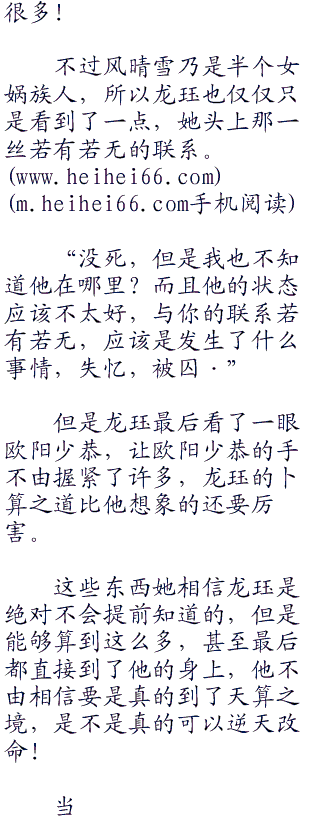 很多！
不过风晴雪乃是半个女
娲族人，所以龙珏也仅仅只
是看到了一点，她头上那一
丝若有若无的联系。
(www.heihei66.com)
(m.heihei66.com手机阅读)
“没死，但是我也不知
道他在哪里？而且他的状态
应该不太好，与你的联系若
有若无，应该是发生了什么
事情，失忆，被囚·”
但是龙珏最后看了一眼
欧阳少恭，让欧阳少恭的手
不由握紧了许多，龙珏的卜
算之道比他想象的还要厉
害。
这些东西她相信龙珏是
绝对不会提前知道的，但是
能够算到这么多，甚至最后
都直接到了他的身上，他不
由相信要是真的到了天算之
境，是不是真的可以逆天改
命！
当